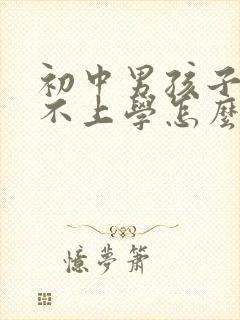 初中男孩子
不上學怎麼
憶夢蕭